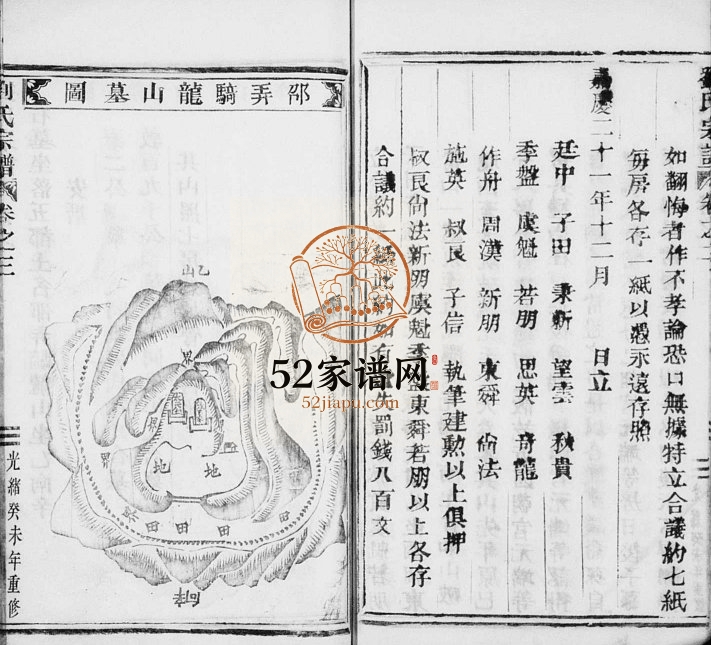 劉氏宗譜
如翻悔者作不孝論恐口無據特立合議約七紙
每房各存一紙以慿永遠存照
嘉慶二十一年十二月 日立
廷中 子田 秉新 望雲 秋貴
季盤 虞魁 若朋 思英 奇龍
作舟 周漢 新朋 東舜 尚法
施英 叔良 子信 執筆建勲以上俱押
叔良尚法新朋虞魁季盤東舜若朋以上各存
合議約一紙此約如有失罰錢八百文
邵弄騎龍山墓圖
山
界
地
地
界
田
田
田
田
劉氏宗譜
卷之三
光緒癸未年重修
52家谱网
52jiapu.com